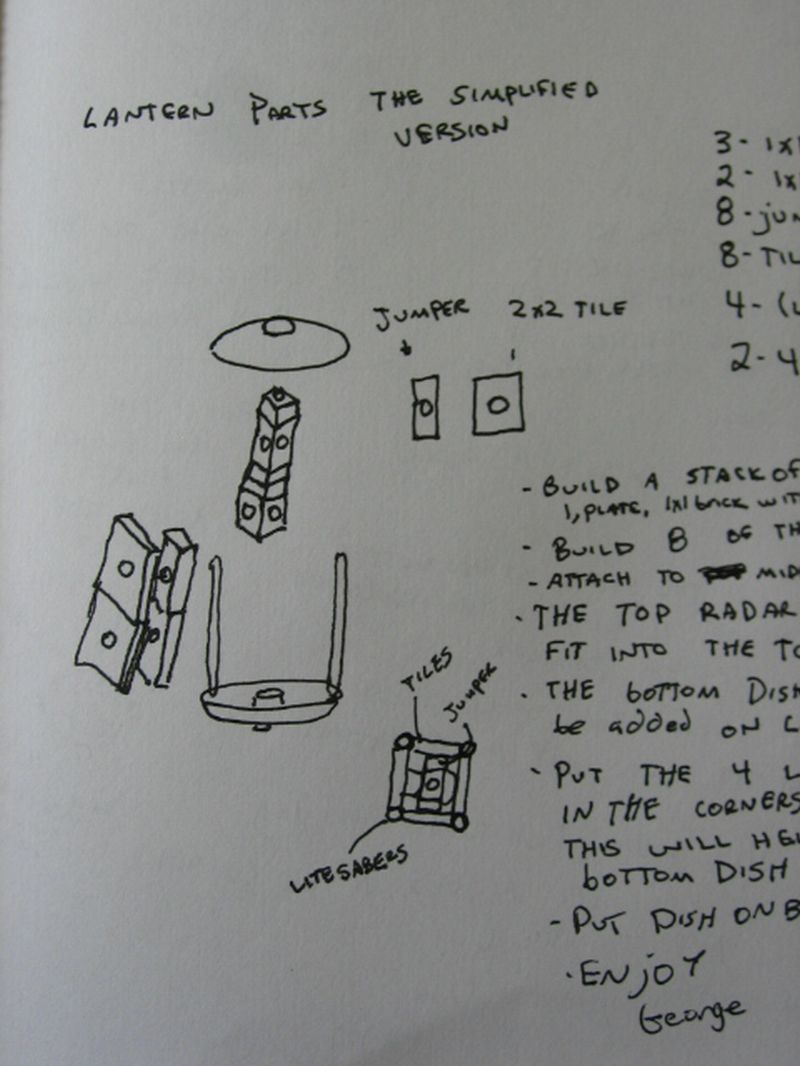 LANTERN PARTS THE SIMPLIFIED
VERSION
3 - 1x1
2 - 1x1
8 - JUM
8 - TIL
4 - (L
2 - 4
JUMPER 2x2 TILE
- BUILD A STACK OF
1, PLATE, 1x1 brick WIT
- BUILD 8 OF TH
- ATTACH TO MID
· THE TOP RADAR
FIT INTO THE TO
· THE bOTTOM DISH
be added ON L
- PUT THE 4 L
IN THE CORNERS
THIS WILL HEL
bOTTOM DISH
- PUT DISH ON B
· ENJOY
George
TILES
JUMPER
LITESABERS